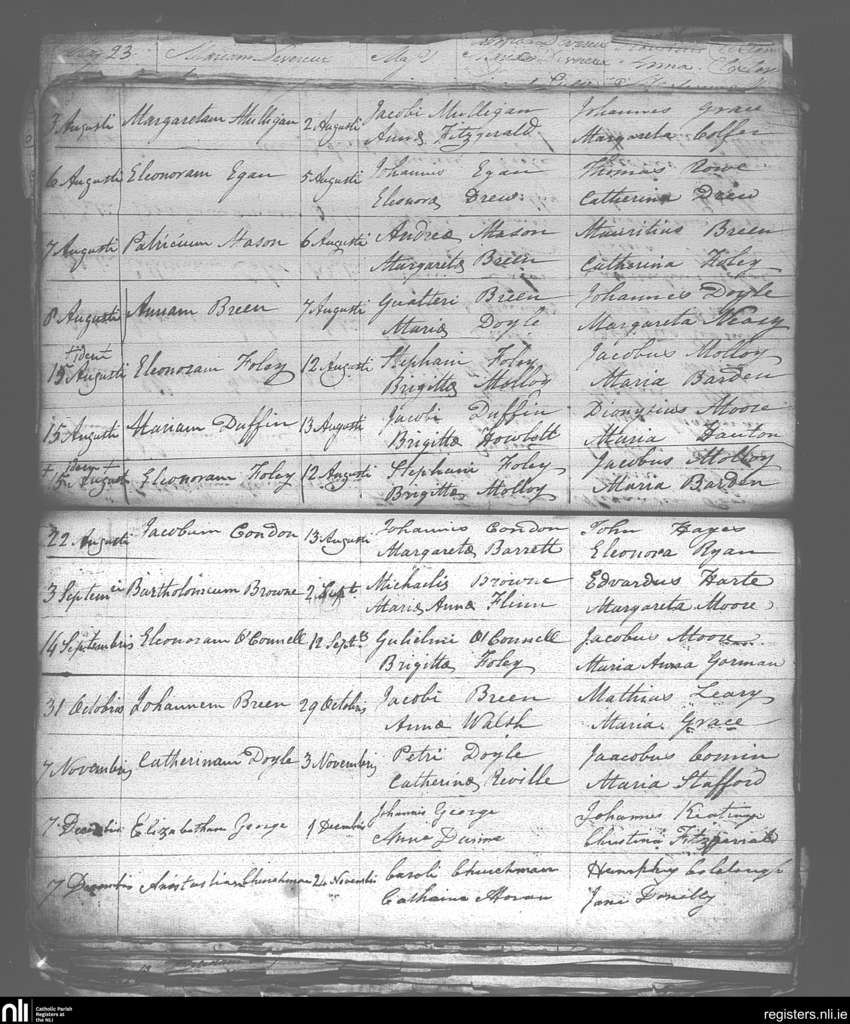 23 Mariam Devereux
3 Augusti Margaretam Mulligan 2 Augusti Jacobi Mulligan Johannes Grace
Annæ Fitzgerald Margareta Colfer
6 Augusti Eleonoram Egan 5 Augusti Johannis Egan Thomas Rowe
Eleonoræ Drew Catherina Drew
7 Augusti Patricium Mason 6 Augusti Andreæ Mason Mauritius Breen
Margaritæ Breen Catherina Foley
8 Augusti Annam Breen 7 Augusti Gualteri Breen Johannes Doyle
Mariæ Doyle Margareta Neary
+ idem +
15 Augusti Eleonoram Foley 12 Augusti Stephani Foley Jacobus Molloy
Brigittæ Molloy Maria Barden
15 Augusti Mariam Duffin 13 Augusti Jacobi Duffin Dionysius Moore
Brigittæ Howlett Maria
+ idem +
15 Augusti Eleonoram Foley 12 Augusti Stephani Foley Jacobus Molloy
Brigittæ Molloy Maria Barden
22. Augusti Jacobum Condon 13 Augusti Johannis Condon John Hayes
Margaretæ Barrett Eleonora Ryan
3 Septem Bartholomeum Browne 2 Sept. Michaelis Browne Edvardus Harte
Mariæ Annæ Flinn Margareta Moore
14 Septembris Eleonoram O'Connell 12 Sept. Gulielmi O'Connell Jacobus Moore
Brigittæ Foley Maria Anna Gorman
31 Octobris Johannem Breen 29 Octobris Jacobi Breen Mathias Leary
Annæ Walsh Maria Grace
7 Novembris Catherinam Doyle 3 Novembris Petri Doyle Jaacobus Comin
Catherinæ Reville Maria Stafford
7 Decembris Elizabetham George 1 Decembris Johannis George Johannes Keatinge
Anna Christina Fitzgerrald
7 Decembris Anastasiam Churchman 24 Novembri Caroli Churchman Humphry
Catharine Moran Jane Donelly
nli Catholic Parish
Registers at
the NLI
registers.nli.ie